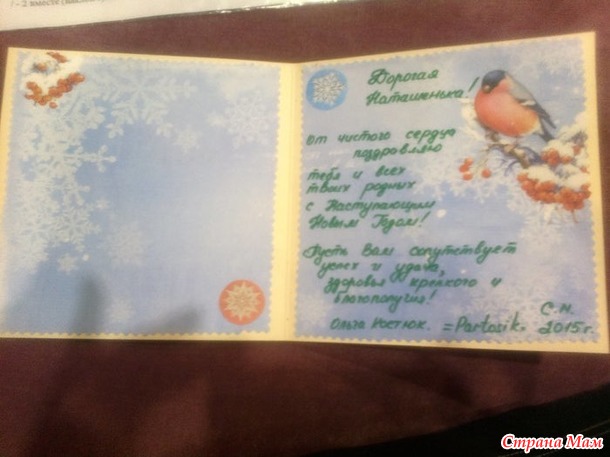 Дорогая
Наташенька!
От чистого сердца
поздравляю
тебя и всех
твоих родных
с Наступающим
Новым Годом!
Пусть Вам сопутствует
успех и удача,
здоровья крепкого и
благополучия!
Ольга Костюк. =Partosik.
С.Н.
2015г.
Страна Мам